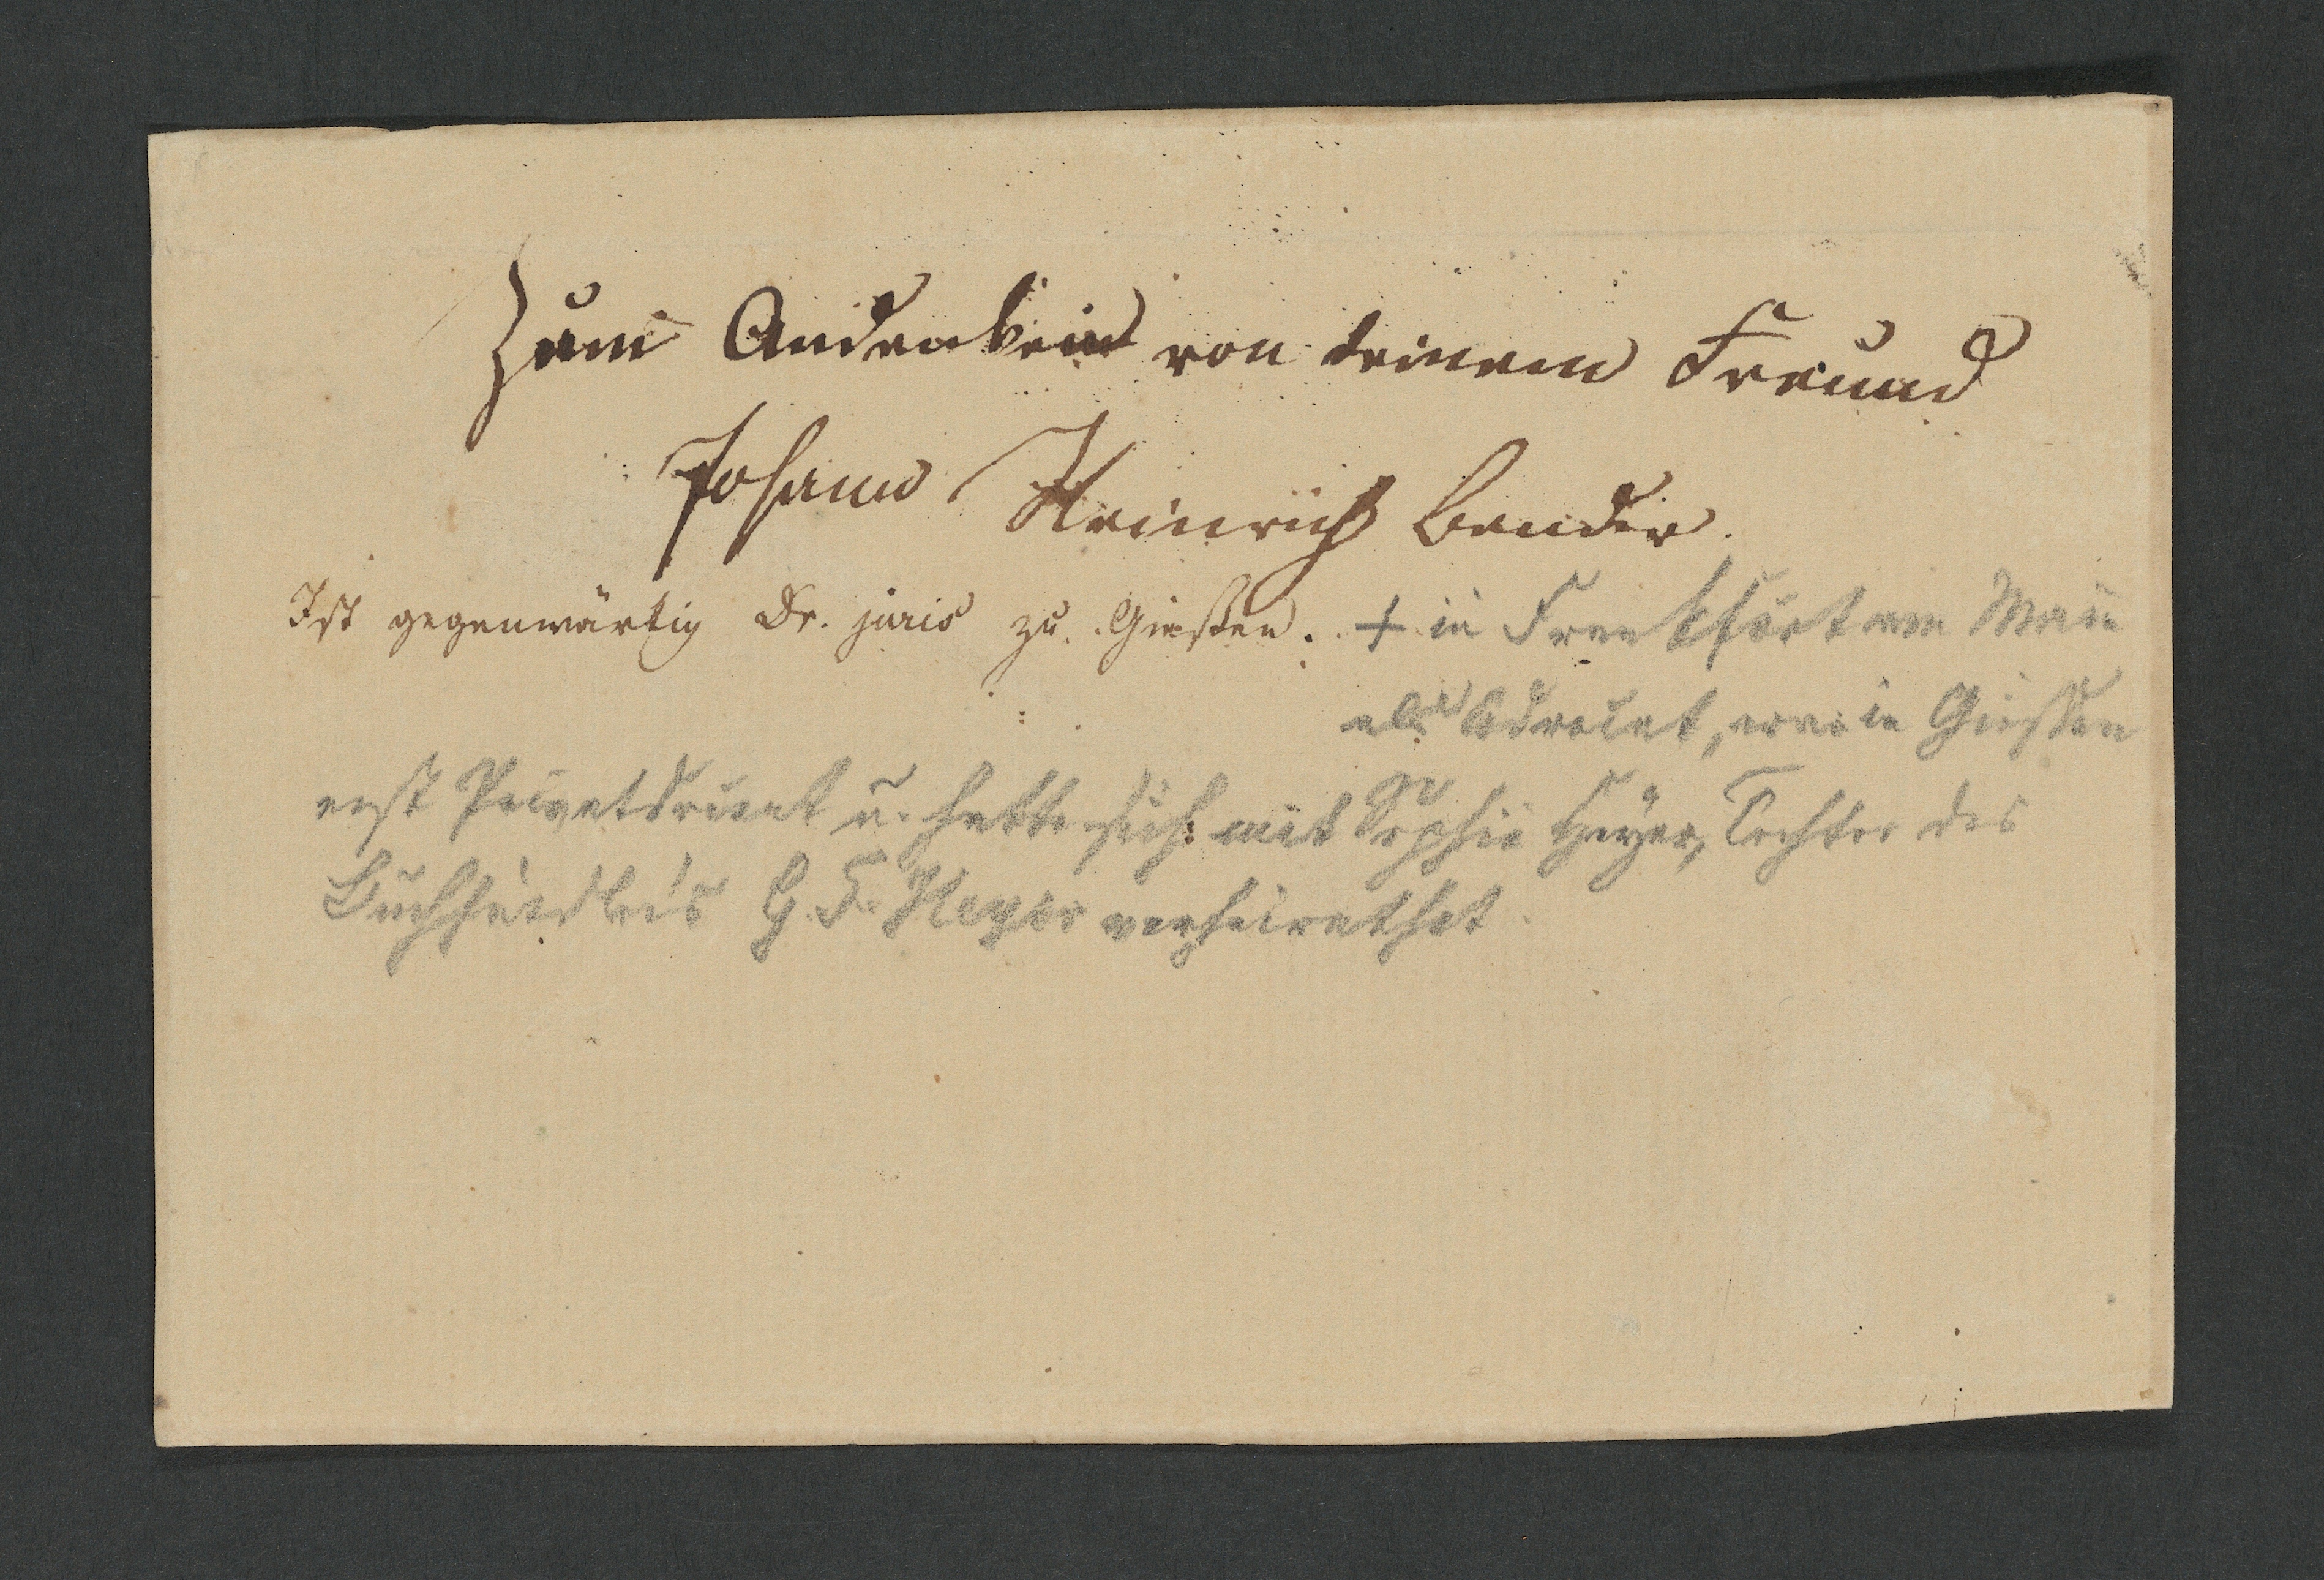 Zum Andenken von deinem Freund
Johann Heinrich Bender.
Ist gegenwärtig Dr. juris zu Gießen. † in Frankfurt am Main
als Advocat, war in Giessen
erst Privatdocent u. hatte sich mit Sophie Heyer, Tochter des
Buchhändlers G. F. Heyer verheirathet